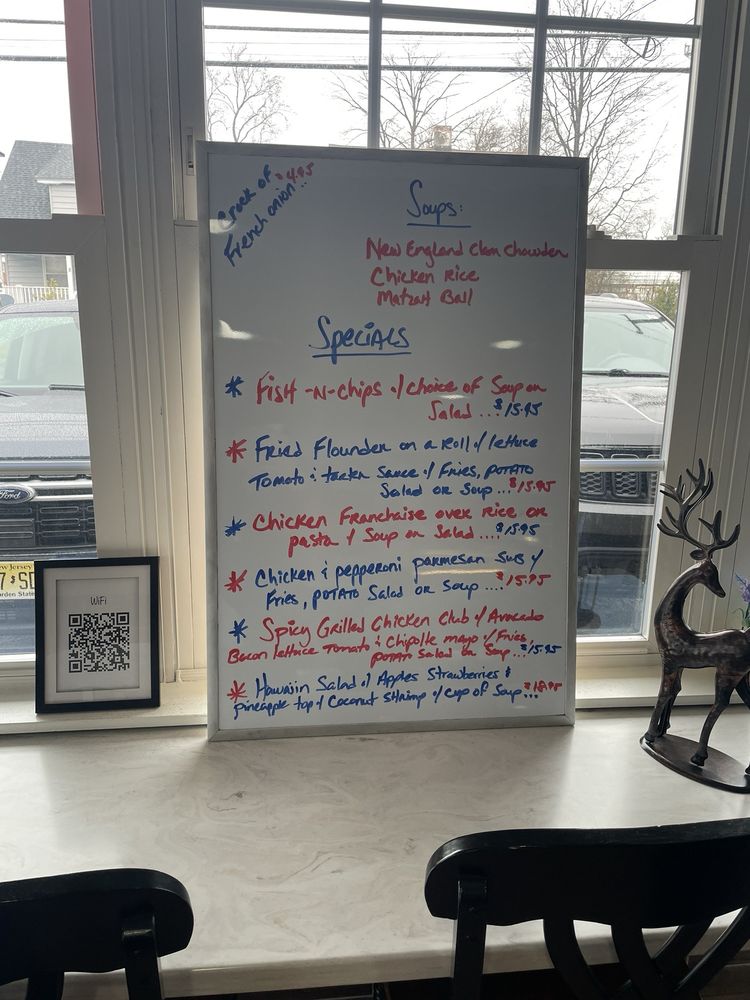 Crock of $4.95
French onion...
Soups:
New England Clam Chowder
Chicken Rice
Matzah Ball
Specials
* Fish -N- Chips w/ choice of Soup or
Salad ... $15.95
* Fried Flounder on a Roll w/ lettuce
Tomato & tarter Sauce w/ Fries, potato
Salad or Soup ... $15.95
* Chicken Franchaise over Rice or
pasta w/ Soup or Salad .... $15.95
* Chicken & pepperoni parmesan Sub w/
Fries, potato Salad or Soup .... $15.95
* Spicy Grilled Chicken Club w/ Avocado
Bacon lettuce Tomato & Chipolte mayo w/ Fries,
potato Salad or Soup... $15.95
* Hawaiin Salad w/ Apples Strawberries &
pineapple top w/ Coconut Shrimp w/ cup of Soup...
WiFi
Ford
New Jersey
Garden State